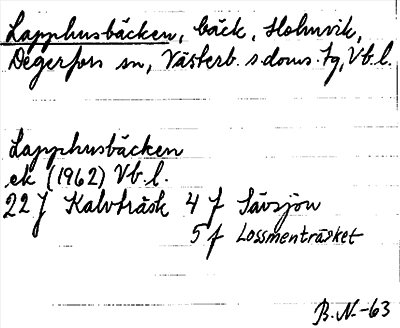 Lapphusbäcken, bäck, Holmvik,
Degerfors sn, Västerb. s doms. tg, Vb.l.
Lapphusbäcken
ek (1962) Vb.l.
22 J Kalvträsk 4 f Sävsjön
5 f Lossmenträsket
B.N.-63